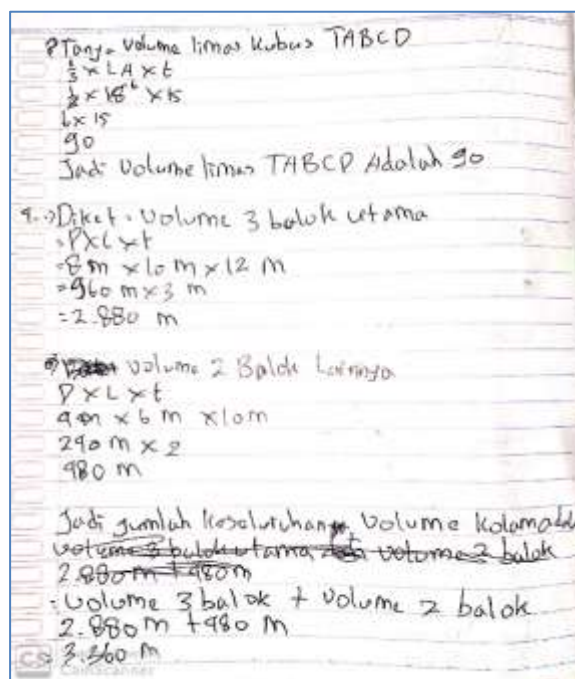 ? Tanya volume limas kubus TABCD
1/3 x LA x t
1/3 x 18 6 x 15
6 x 15
90
Jadi volume limas TABCD Adalah 90
4. Diket . Volume 3 balok utama
= P x L x t
= 8 m x 10 m x 12 m
= 960 m x 3 m
= 2.880 m
volume 2 Balok Lainnya
P x L x t
4 m x 6 m x 10 m
240 m x 2
480 m
Jadi jumlah keseluruhan volume kolam
volume 3 balok utama volume 2 balok
2.880 m + 480 m
= volume 3 balok + volume 2 balok
2.880 m + 480 m
= 3.360 m
CS Camscanner